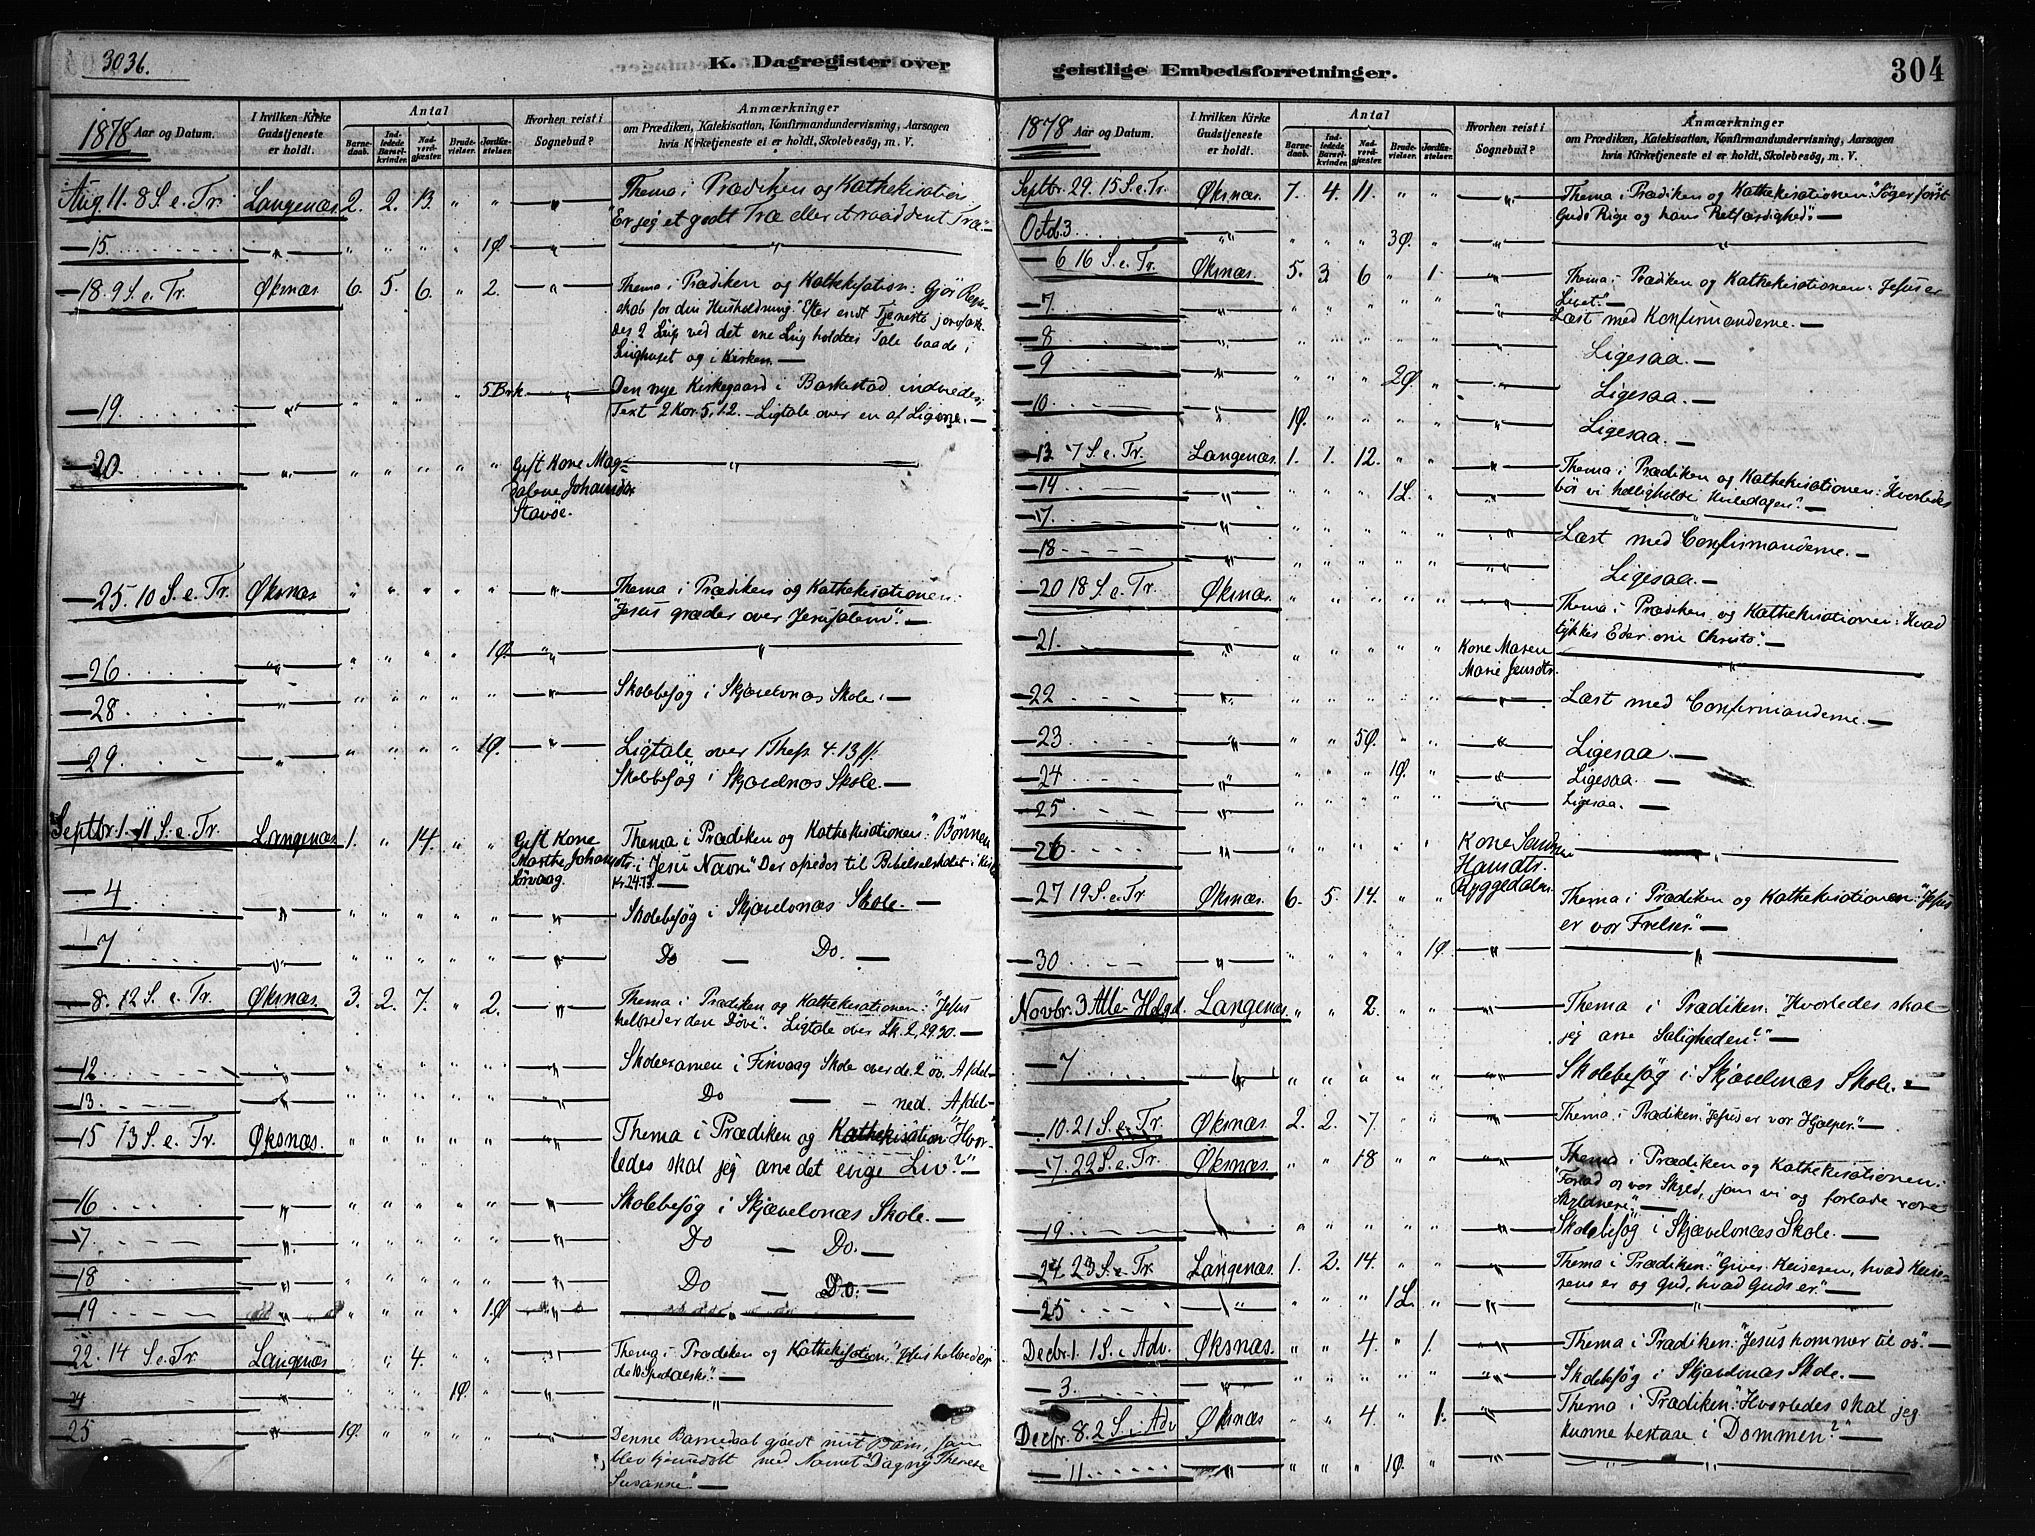 303b.
K. Dagregister over
1878 Aar og Datum.
I hvilken Kirke Gudstjeneste er holdt.
Antal
Barnedaab.
Indledede Barselkvinder.
Nadvergjester.
Brudevielser.
Jordfæstelser.
Hvorhen reist i Sognebud?
Anmærkninger
om Prædiken, Katekisation, Konfirmandundervisning, Aarsagen
hvis Kirketjeneste ei er holdt, Skolebesög, m. V.
Aug. 11. 8 S. e. Tr. Langenæs 2. 2. 13. " " " Thema i Prædiken og Kathekisation
"Er jeg et godt Træ eller et raaddent Træ." —
— 15 " " " " " 1Ø "
— 18. 9 S. e. Tr. Øksnæs 6. 5. 6. " 2. " Thema i Prædiken og Kathekisation: Gjör Regn-
skab for din Husholdning." Efter endt Tjeneste jordfæst-
des 2 Lig ved det ene Lig holdtes Tale baade i
Lighuset og i Kirken. —
— 19. " " " " " 5 Brk. " Den nye Kirkegaard i Barkestad indviedes;
Text 2 Kor. 5, 1.2. — Ligtale over en af Ligene. —
— 20. " " " " " " Gift Kone Mag-
dalene Johansdtr
Stavöe.
— 25. 10 S. e. Tr. Øksnæs " " " " " " Thema i Prædiken og Kathekisationen:
"Jesus græder over Jerusalem". —
— 26 " " " " " 1Ø. "
— 28 " " " " " " " Skolebesøg i Skjævelnæs Skole. —
— 29. " " " " " 1Ø. " Ligtale over 1 Thess. 4. 13 ff.
Skolebesøg i Skjævelnæs Skole. —
Septbr. 1. 11 S. e. Tr. Langenæs 1. " 14. " " Gift Kone
Marthe Johansdtr.
Sörvaag
Thema i Prædiken og Kathekisationen: "Bønnen
i Jesu Navn." Der ofredes til Bibelselskabet i
— 4 " " " " " " " Skolebesøg i Skjævelnæs Skole. —
— 7 " " " " " " " Do — Do. —
— 8. 12 S. e. Tr. Øksnæs. 3. 2. 7. " 2. " Thema i Prædiken og Kathekisationen: "Jesus
helbreder den Döve". Ligtale over Lk. 2, 29.30. —
— 12 " " " " " " " Skoleexamen i Finvaag Skole over de 2 öv. Afdel-
— 13. " " " " " " " Do — — ned. Afdel-
— 15 13 S. e. Tr. Øksnæs. " " " " " " Thema i Prædiken og Kathekisation "Hvor-
ledes skal jeg arve det evige Liv?" —
— 16 " " " " " " " Skolebesøg i Skjævelnæs Skole. —
— 17. " " " " " " " Do — Do. —
— 18 " " " " " " " Do — Do. —
— 19 " " " " " 1Ø "
— 22. 14 S. e. Tr. Langenæs " " 4. " " " Thema i Prædiken og Kathekisation: "Jesus helbreder
de 10 Spedalske." —
— 24 " " " " 1Ø. " "
— 25 " 1Ø. " " " " " Denne Barnedaab gjordt mit Barn, som
blev hjemmedöbt med Navnet "Dagny Therese
Susanne". —
geistlige Embedsforretninger.
304
1878 Aar og Datum.
I hvilken Kirke Gudstjeneste er holdt.
Antal
Barnedaab.
Indledede Barselkvinder.
Nadvergjester.
Brudevielser.
Jordfæstelser.
Hvorhen reist i Sognebud?
Anmærkninger
om Prædiken, Katekisation, Konfirmandundervisning, Aarsagen
hvis Kirketjeneste ei er holdt, Skolebesög, m. V.
Septbr. 29. 15 S. e. Tr. Øksnæs. 7. 4. 11. " " " Thema i Prædiken og Kathekisationen: "Söger först
Guds Rige og hans Retfærdighed". —
Octb. 3 " " " " 3Ø. " "
— 6 16 S. e. Tr. Øksnæs. 5. 3 6 " 1 " Thema i Prædiken og Kathekisationen: "Jesus er
Livet". —
— 7 " " " " " " " Læst med Konfirmanderne. —
— 8 " " " " " " " Ligesaa. —
— 9 " " " " 2Ø " " Ligesaa. —
— 10 " 1Ø. " " " " " Ligesaa. —
— 13 17 S. e. Tr. Langenæs. 1. 1. 12. " " " Thema i Prædiken og Kathekisationen: "Hvorledes
bör vi helligholde Hviledagen". —
— 14 " " " " 1L. " "
— 17. " " " " " " " Læst med Confirmanderne. —
— 18 " " " " " " " Ligesaa —
— 20 18 S. e. Tr. Øksnæs. " " " " " " Thema i Prædiken og Kathekisationen: "Hvad
tykkes Eder om Christo". —
— 21. " " " " " " Kone Maren
Marie Jensdtr.
— 22 " " " " " " " Læst med Confirmanderne. —
— 23 " " " 5Ø. " " " Ligesaa —
— 24 " " " " 1Ø. " " Ligesaa. —
— 25 " " " " " " " Ligesaa. —
— 26 " " " " " " Kone
Hansdtr.
Ryggedalen.
— 27 19 S. e. Tr Øksnæs. 6. 5. 14. " " " Thema i Prædiken og Kathekisationen: "Jesus
er vor Frelser." —
— 30 " " " " " 1Ø. "
Novbr. 3 Alle Helgd. Langenæs. " " 2. " " " Thema i Prædiken: "Hvorledes skal
jeg arve Saligheden?" —
— 7 " " " " " " " Skolebesøg i Skjævelnæs Skole. —
— 10. 21 S. e. Tr. Øksnæs 2. 2. 7. " " " Thema i Prædiken: "Jesus er vor Hjælper." —
— 17. 22 S. e. Tr. Øksnæs. " " 18 " " " Thema i Prædiken og Kathekisationen:
"Forlad os vor Skyld, som vi og forlade vore
Skyldnere". —
— 19. " " " " " " " Skolebesøg i Skjævelnæs Skole. —
— 24. 23 S. e. Tr. Langenæs. 1. 2. 14. " " " Thema i Prædiken: "Giver Keiseren, hvad Keise-
rens er og Gud, hvad Guds er". —
— 25 " " " " 1L. " "
Decbr. 1. 1 S. i Adv. Øksnæs. " " 4. " 1. " Thema i Prædiken: "Jesus kommer til os". —
— 3. " " " " " " " Skolebesøg i Skjævelnæs Skole. —
Decbr. 8. 2 S. i Adv Øksnæs " " 4. " 1. " Thema i Prædiken: "Hvorledes skal jeg
kunne bestaae i Dommen?" —
— 11 " " " " 1Ø. " "